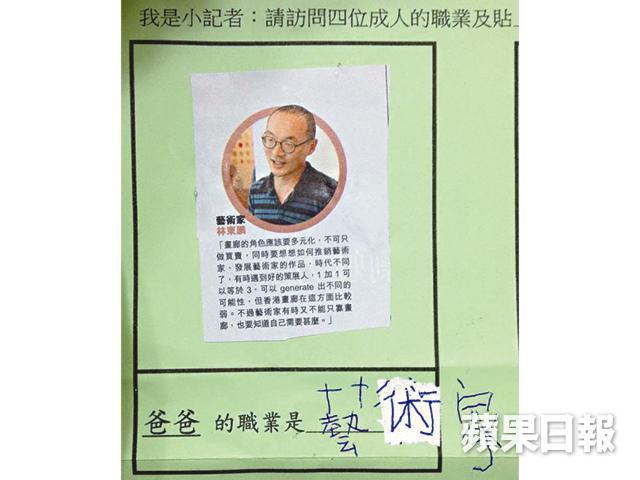 我是小記者：請訪問四位成人的職業及貼
藝術家
林東鵬
「畫廊的角色應該要多元化，不可只
做買賣，同時要想想如何推銷藝術
家、發展藝術家的作品，時代不同
了，有時遇到好的策展人，1 加 1 可
以等於 3，可以 generate 出不同的
可能性，但香港畫廊在這方面比較
弱。不過藝術家有時又不能只靠畫
廊，也要知道自己需要甚麼。」
爸爸 的職業是 藝術
蘋果日報